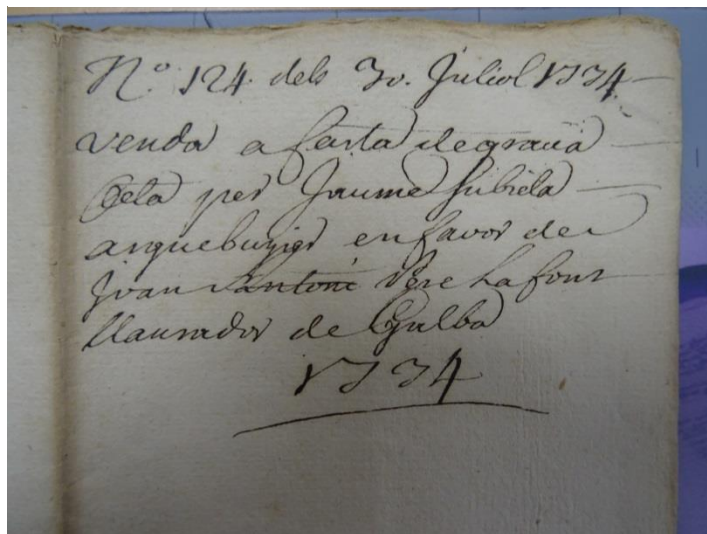 N.º 124. dels 30. Juliol 1734
venda a Carta de gracia
feta per Jaume Subiela
arquebuzier en favor de
Juan Antoni Pere Lafont
llaurador de Gualba
1734